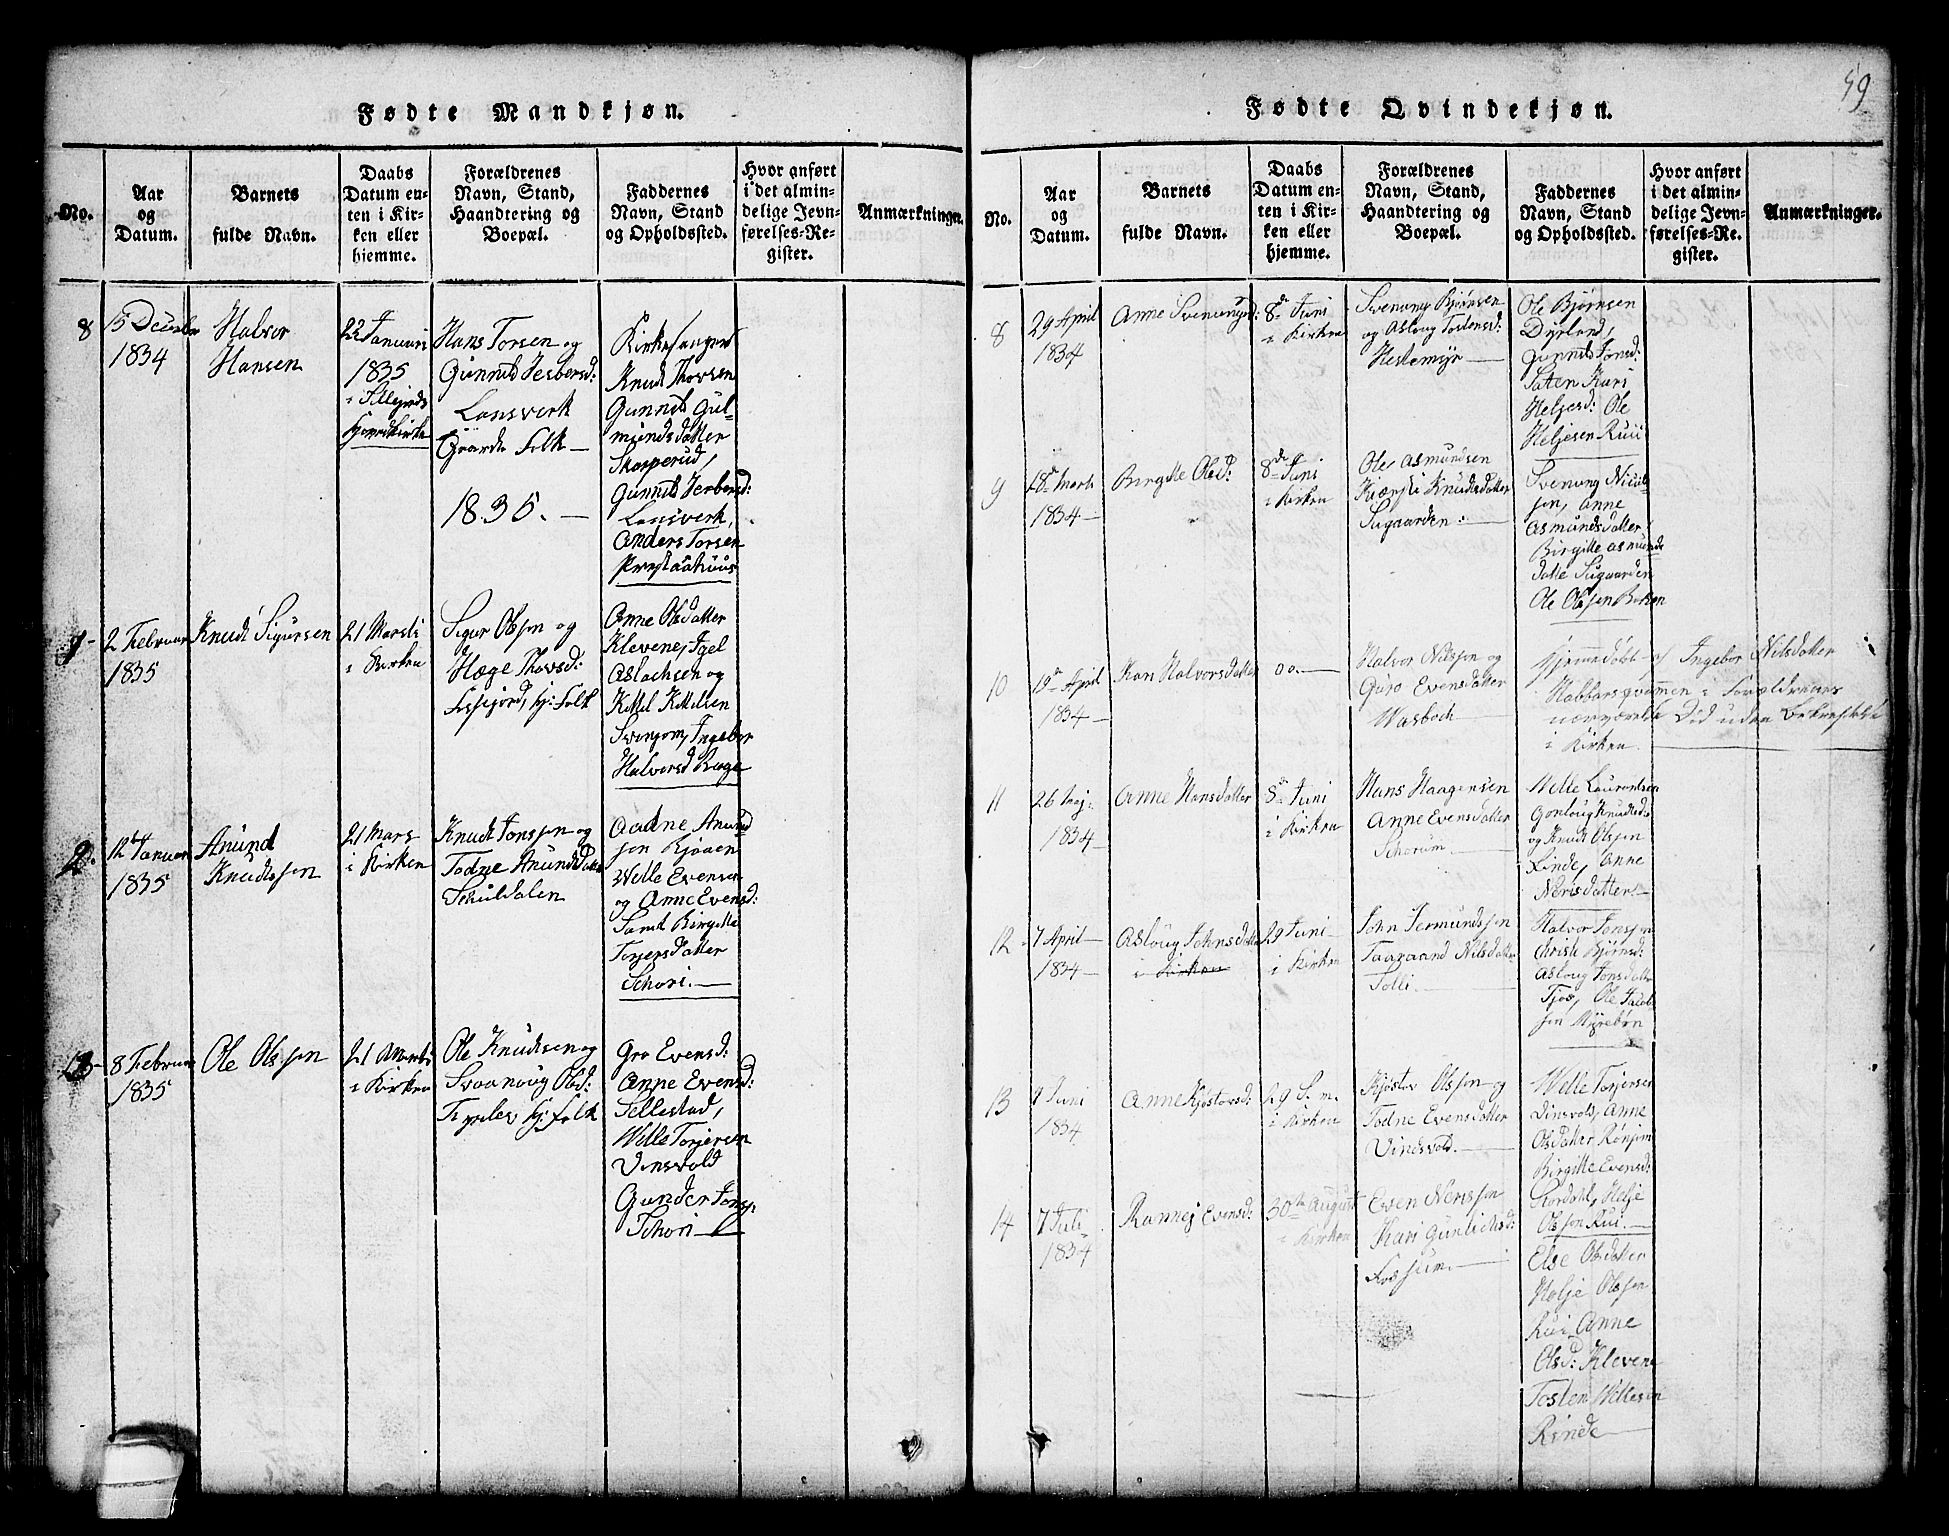 Fødte Mandkjøn.
No.
Aar
og
Datum.
Barnets
fulde Navn.
Daabs
Datum en-
ten i Kir-
ken eller
hjemme.
Forældrenes
Navn, Stand,
Haandtering og
Boepæl.
Faddernes
Navn, Stand
og Opholdssted.
Hvor anført
i det almin-
delige Jevn-
førelses-Re-
gister.
Anmærkninger.
8
15 December
1834
Halvor
Hansen
22 Januari
1835
Hans Torsen og
Gunnild
Lonsverk
Gaarde Folk
1835.
Kirkesanger
Knudt Thovsen
Gunnild Gul-
mundsdatter
Skarperud,
Gunnild
Lonsverk,
Anders Torsen
1
2 Februar
1835
Knudt Sigursen
21 Marsti
i Kirken
Sigur Olsen og
Hæge Thovsd:
gj: Folk
Anne Olsdatter
Klevene,
Aslachsen og
Kittel Kittelsen
Ingebor
Halvorsd
2.
12 Januar
1835
Anund
Knudtssen
21 Mars
i Kirken
Knudt Jonssen og
Todne Anundsdatter
Skuldalen
Aadne Anund
sen Bjaaen
Welle Evensen
og Anne Evensd:
Samt Birgitte
Torjersdatter
Schori.
3
8 Februar
1835
Ole Olssen
21 Marti
i Kirken
Ole Knudtsen og
Svaanoug Olsd:
gj: folk
Gro Evensd:
Anne Evensd:
Sellestad,
Welle Torjersen
Vinsvold
Gunder Jonss.
Schori
Fødte Qvindekjøn.
59
No.
Aar
og
Datum.
Barnets
fulde Navn.
Daabs
Datum en-
ten i Kir-
ken eller
hjemme.
Forældrenes
Navn, Stand,
Haandtering og
Boepæl.
Faddernes
Navn, Stand
og Opholdssted.
Hvor anført
i det almin-
delige Jevn-
førelses-Re-
gister.
Anmærkninger.
8
29 April
1834
Anne Svenungsd:
8de Juni
i Kirken
Svenung Bjørnsen
og Asloug Tostensd:
Hestemyr
Ole Bjørnsen
Dyrland,
Gunnild Jonsd:
Saten Kari
Heljesd: Ole
Heljesen Rui
9
18de Marti
1834
Birgitte Olsd:
8de Juni
i Kirken
Ole Asmundsen
Kiersti Knudtsdatter
Sugaarden:
Svenung
sen, Anne
Asmundsdatter
Birgitte Asmunds
datter Sugaarden
Ole Olssen
10
19de April
1834
Kari Halvorsdatter
00.
Halvor Nilssen og
Guro Evensdatter
Wasboch
Hjemmedøbt af Ingebor Nilsdatter
i Forældrenes
nærværelse Død uden Bekræftelse
i Kirken.
11
26 Maj
1834
Anne Hansdatter
8de Juni
i Kirken
Hans Haagensen
Anne Evensdatter
Schorum
Welle Laurantsen
Gonloug Knudtsd:
og Knudt Olssen
Linde, Anne
Nerisdatter
12
7 April
1834
Asloug Johnsdatter
i Kirken
29 Juni
i Kirken
John Jermundssen
Taaraand Nilsdatter
Tolli.
Halvor Jonssen
Christi Bjørnsd:
Asloug Jonsdatter
Tjos, Ole Jacob-
sen Myrebøn
13
1834
Anne Kjøstovsd:
29 S. m.
i Kirken
Kjøstov Olssen og
Todne Evensdatter
Vindsvold.
Welle Torjersen
Vinsvold, Anne
Olsdatter Rønjom
Birgitte Evensd:
Skordahl, Helje
Olssen Rui.
14
7 Juli
1834
Rannej Evensd:
30te August
i Kirken
Even Nerissen
Kari Gunlichsd:
Fossum.
Else Olsdatter
Helje Olssen
Rui Anne
Olsd: Klevene
Tosten Wellesen
Rinde